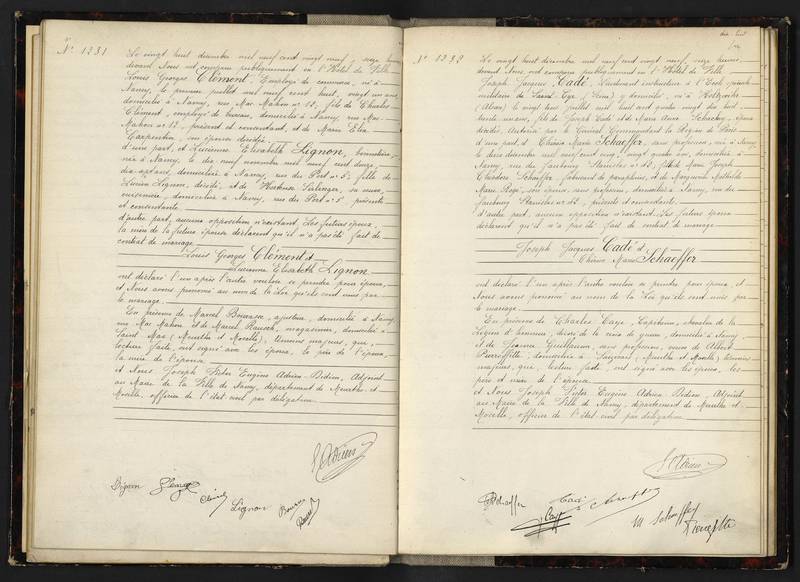 N° 1231
Le vingt huit décembre mil neuf cent vingt neuf, seize heures
devant Nous ont comparu publiquement en l'Hôtel de Ville
Louis Georges Clément, Employé de commerce, né à
Nancy, le premier juillet mil neuf cent huit, vingt un ans,
domicilié à Nancy, rue Mac Mahon n° 12, fils de Charles
Clément, employé de bureau, domicilié à Nancy, rue Mac-
Mahon n° 12, présent et consentant, et de Marie
Carpentin, son épouse décédée
d'une part, et Lucienne Elisabeth Lignon, bonnetière,
née à Nancy, le dix novembre mil neuf cent douze,
dix-sept ans, domiciliée à Nancy, rue du Port n° 5, fille de
Lucien Lignon, décédé, et de sa veuve,
cuisinière, domiciliée à Nancy, rue du Port n° 5, présente
et consentante
d'autre part, aucune opposition n'existant. Les futurs époux,
la mère de la future épouse déclarent qu'il n'a pas été fait de
contrat de mariage
Louis Georges Clément et
Lucienne Elisabeth Lignon
ont déclaré l'un après l'autre vouloir se prendre pour époux,
et Nous avons prononcé au nom de la Loi qu'ils sont unis par
le mariage
En présence de Marcel ajusteur, domicilié à Nancy,
rue Mac Mahon et de Marcel Rauch, magasinier, domicilié à
Saint Max (Meurthe et Moselle), témoins majeurs, qui,
lecture faite, ont signé avec les époux, le père de l'époux,
la mère de l'épouse
et Nous Joseph Victor Eugène Adrien Bidien, Adjoint
au Maire de la Ville de Nancy, département de Meurthe et
Moselle, officier de l'état civil par délégation
Lignon
Clément
Lignon
N° 1232
Le vingt huit décembre mil neuf cent vingt neuf, seize heures
devant Nous ont comparu publiquement en l'Hôtel de Ville
Joseph Jacques Cadé, Lieutenant instructeur à l'École spéciale
militaire de Saint Cyr, y domicilié, né à
(Alsace) le vingt juillet mil huit cent quatre vingt dix huit,
trente un ans, fils de Joseph Cadé et de Marie Anne époux
décédés, Autorisé par le Général Commandant la Région de Paris
d'une part, et Thérèse Marie Schaeffer, sans profession, née à Nancy
le deux décembre mil neuf cent cinq, vingt quatre ans, domiciliée à
Nancy, rue du faubourg Stanislas n° 42, fille de Marie Joseph
Théodore Schaeffer, fabricant de parapluies, et de Marguerite Mathilde
Marie son épouse, sans profession, domiciliés à Nancy, rue du
faubourg Stanislas n° 42, présents et consentants
d'autre part, aucune opposition n'existant. Les futurs époux
déclarent qu'il n'a pas été fait de contrat de mariage
Joseph Jacques Cadé et
Thérèse Marie Schaeffer
ont déclaré l'un après l'autre vouloir se prendre pour époux, et
Nous avons prononcé au nom de la Loi qu'ils sont unis par
le mariage
En présence de Charles Caye, Capitaine, chevalier de la
Légion d'honneur, décoré de la croix de guerre, domicilié à Nancy,
et de Jeanne Guillaume, sans profession, veuve de Albert
Pierrefitte, domiciliée à (Meurthe et Moselle), témoins
majeurs, qui, lecture faite, ont signé avec les époux, les
père et mère de l'épouse
et Nous Joseph Victor Eugène Adrien Bidien, Adjoint
au Maire de la Ville de Nancy, département de Meurthe et
Moselle, officier de l'état civil par délégation
Schaeffer
Cadé
Caye
M Schaeffer
Pierrefitte